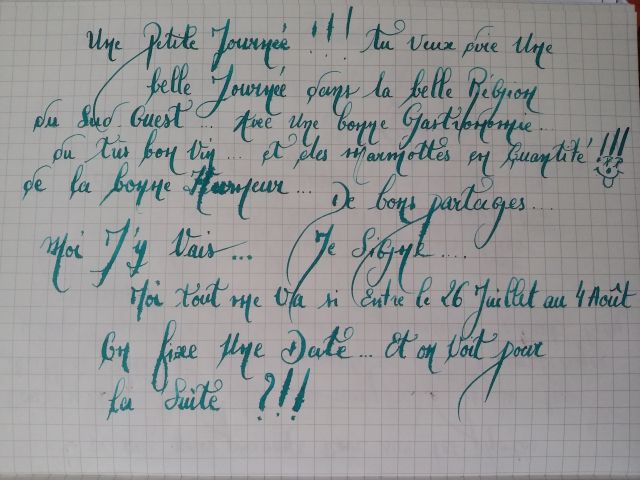 Une Petite Journée !!! tu veux dire Une
belle Journée dans la belle Région
du Sud Ouest... Avec Une bonne Gastronomie...
du très bon Vin... et des marmottes en Quantité !!!
de la bonne Humeur...
De bons partages....
Moi J'y Vais... Je Signe....
Moi tout me Va si Entre le 26 Juillet au 4 Août
On fixe Une Date... Et on Voit pour
la Suite ?!!